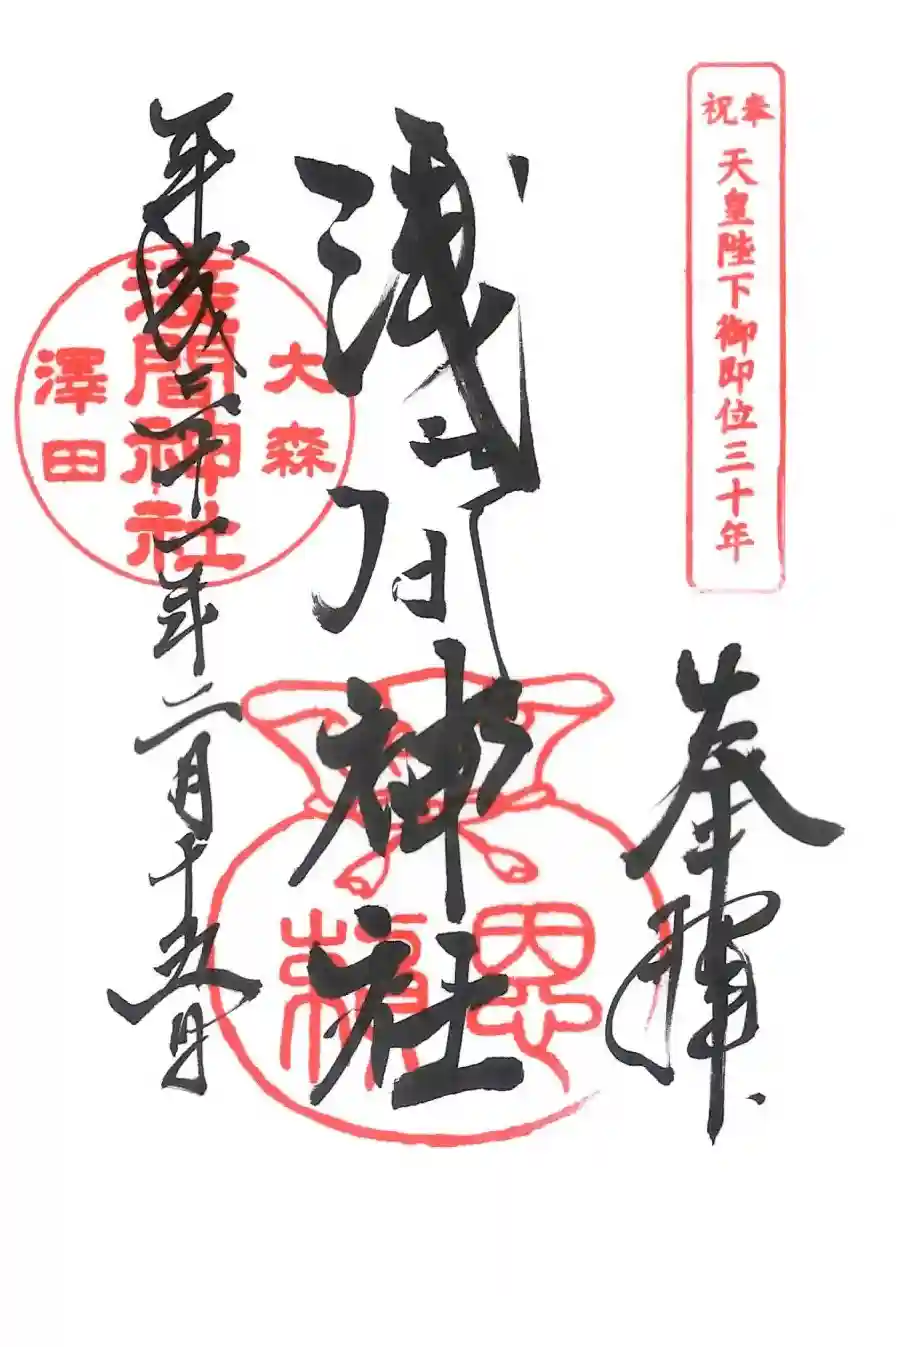 奉祝
天皇陛下御即位三十年
奉拝
浅間神社
恩頼
大森
浅間神社
澤田
平成三十一年二月十五日